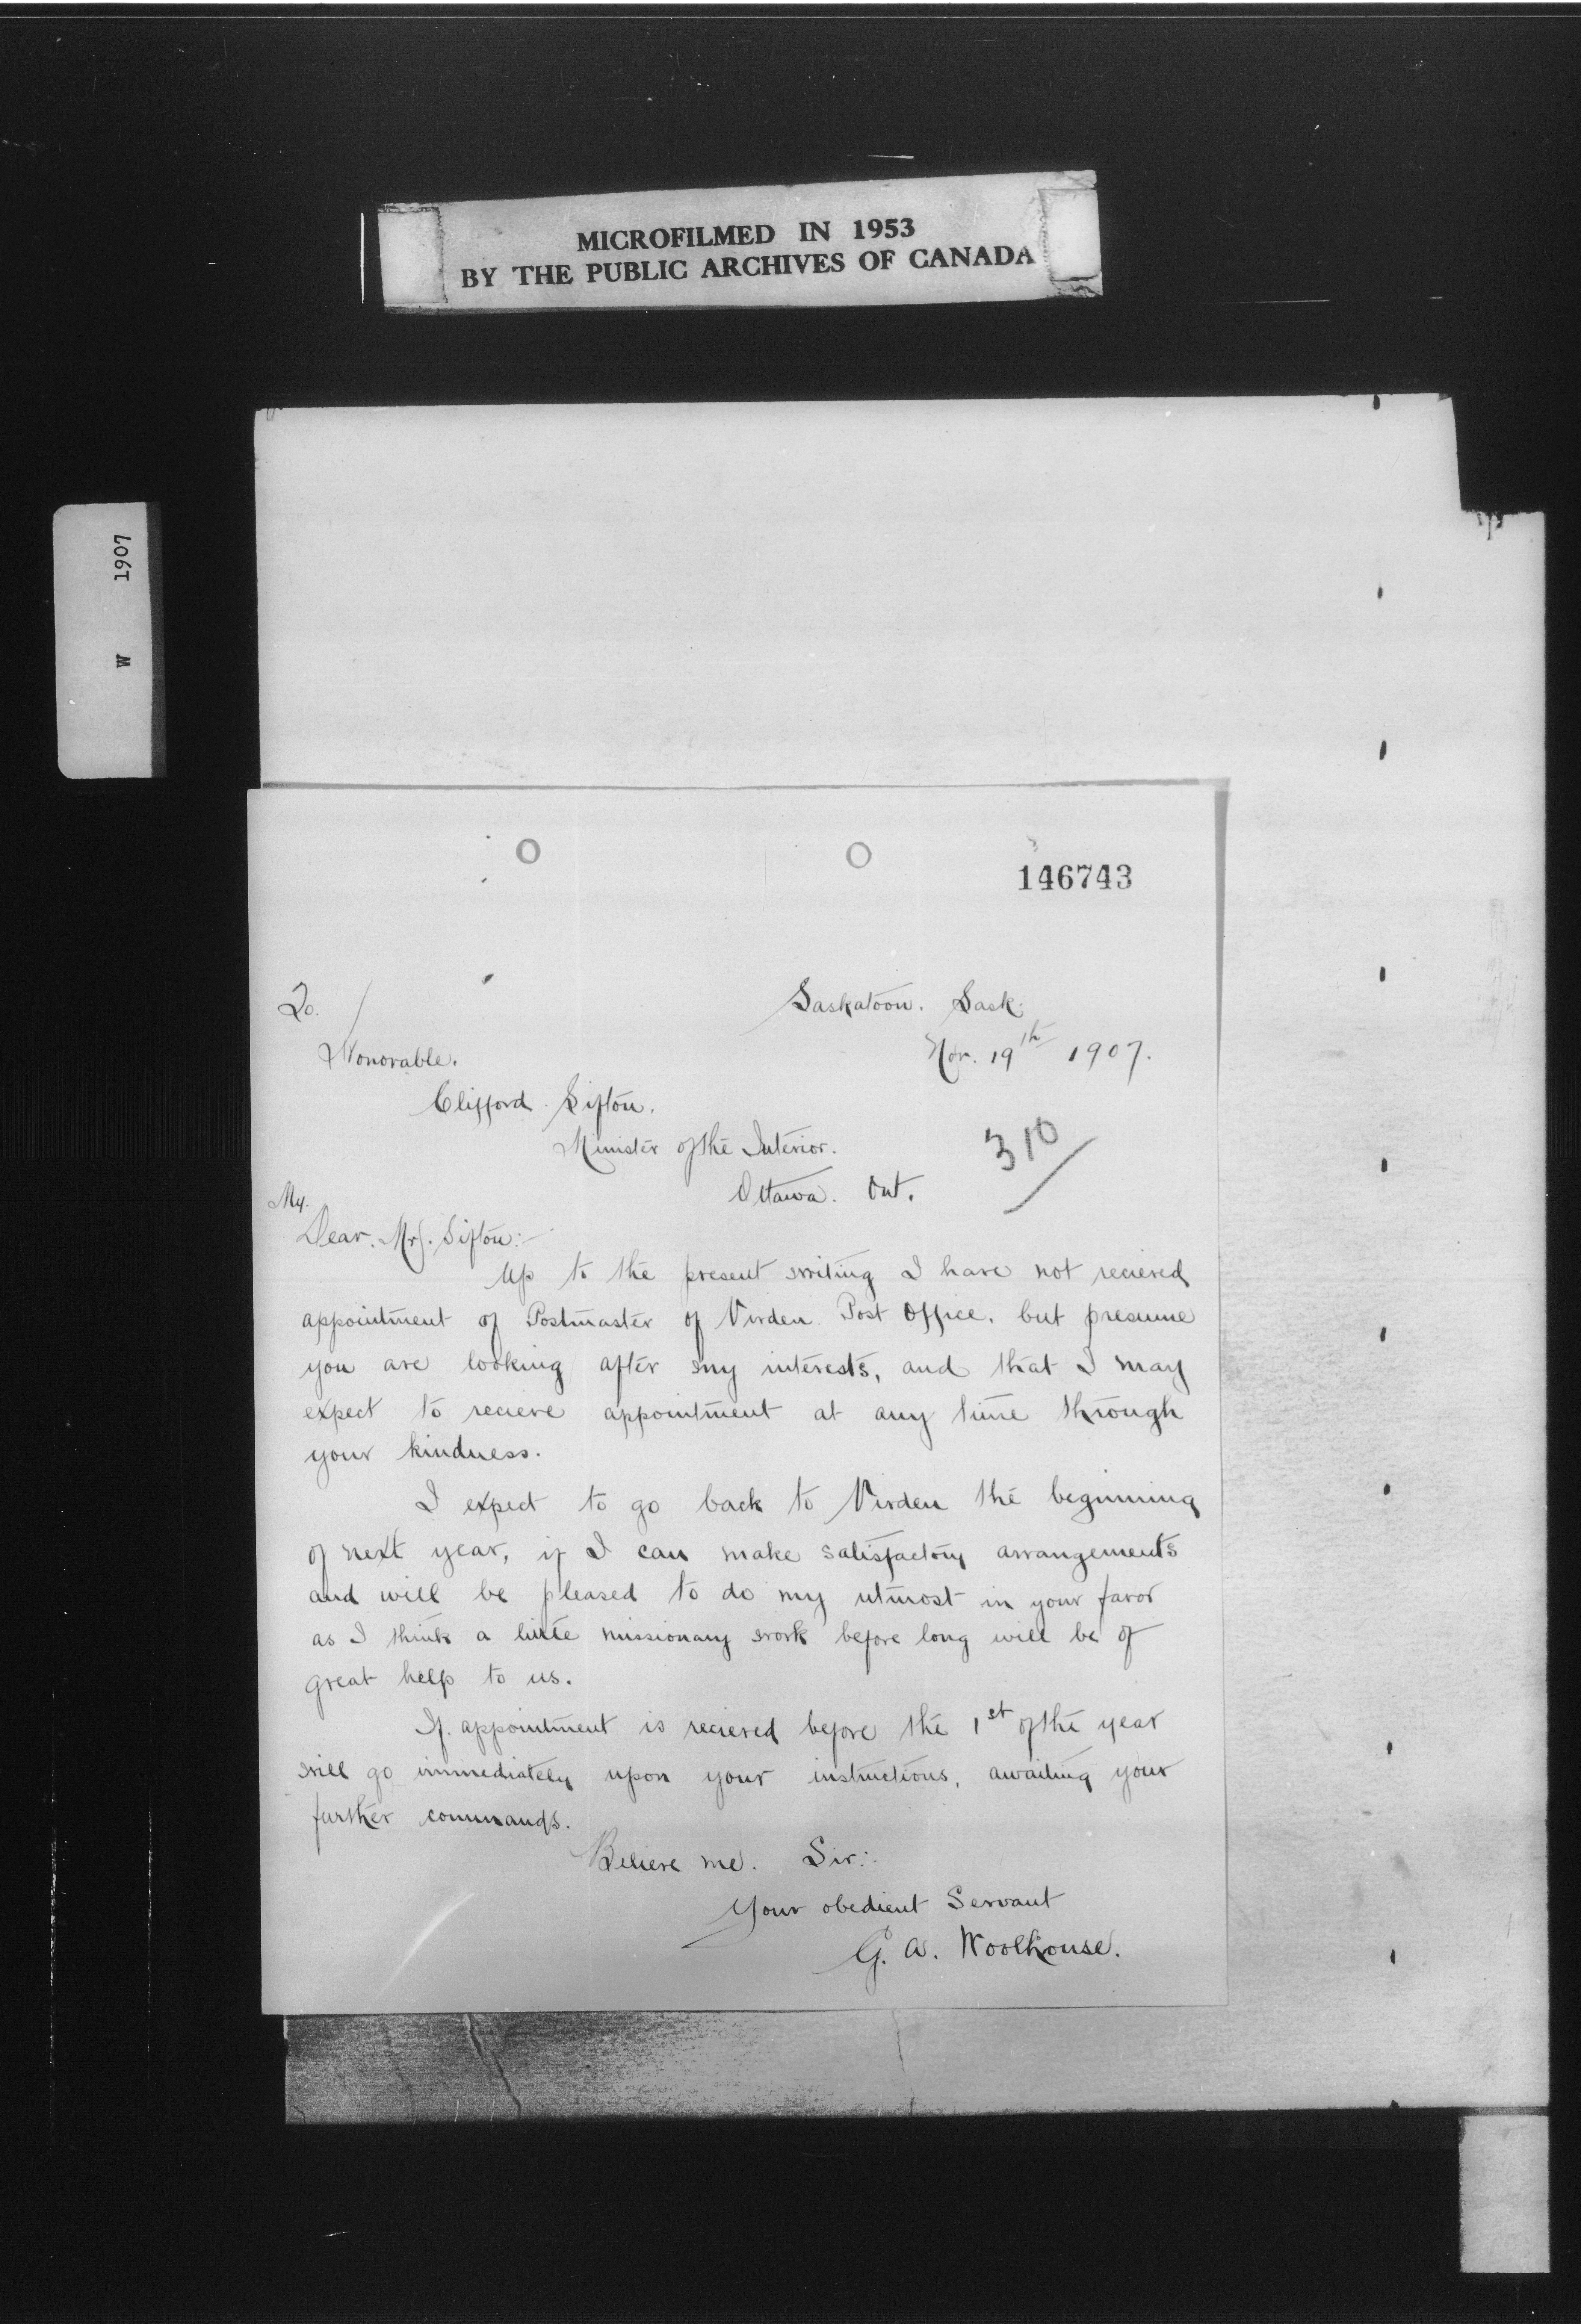 MICROFILMED IN 1953
BY THE PUBLIC ARCHIVES OF CANADA
W 1907
146743
To.
Saskatoon. Sask.
Honorable.
Nov. 19th 1907.
Clifford Sifton.
Minister of the Interior.
310
Ottawa. Ont.
My.
Dear. Mr. Sifton:-
Up to the present writing I have not recieved
appointment of Postmaster of Virden Post Office. but presume
you are looking after my interests, and that I may
expect to recieve appointment at any time through
your kindness.
I expect to go back to Virden the beginning
of next year, if I can make satisfactory arrangements
and will be pleased to do my utmost in your favor
as I think a little missionary work before long will be of
great help to us.
If appointment is recieved before the 1st of the year
will go immediately upon your instructions, awaiting your
further commands.
Believe me. Sir:.
Your obedient Servant
G. A. Woolhouse.